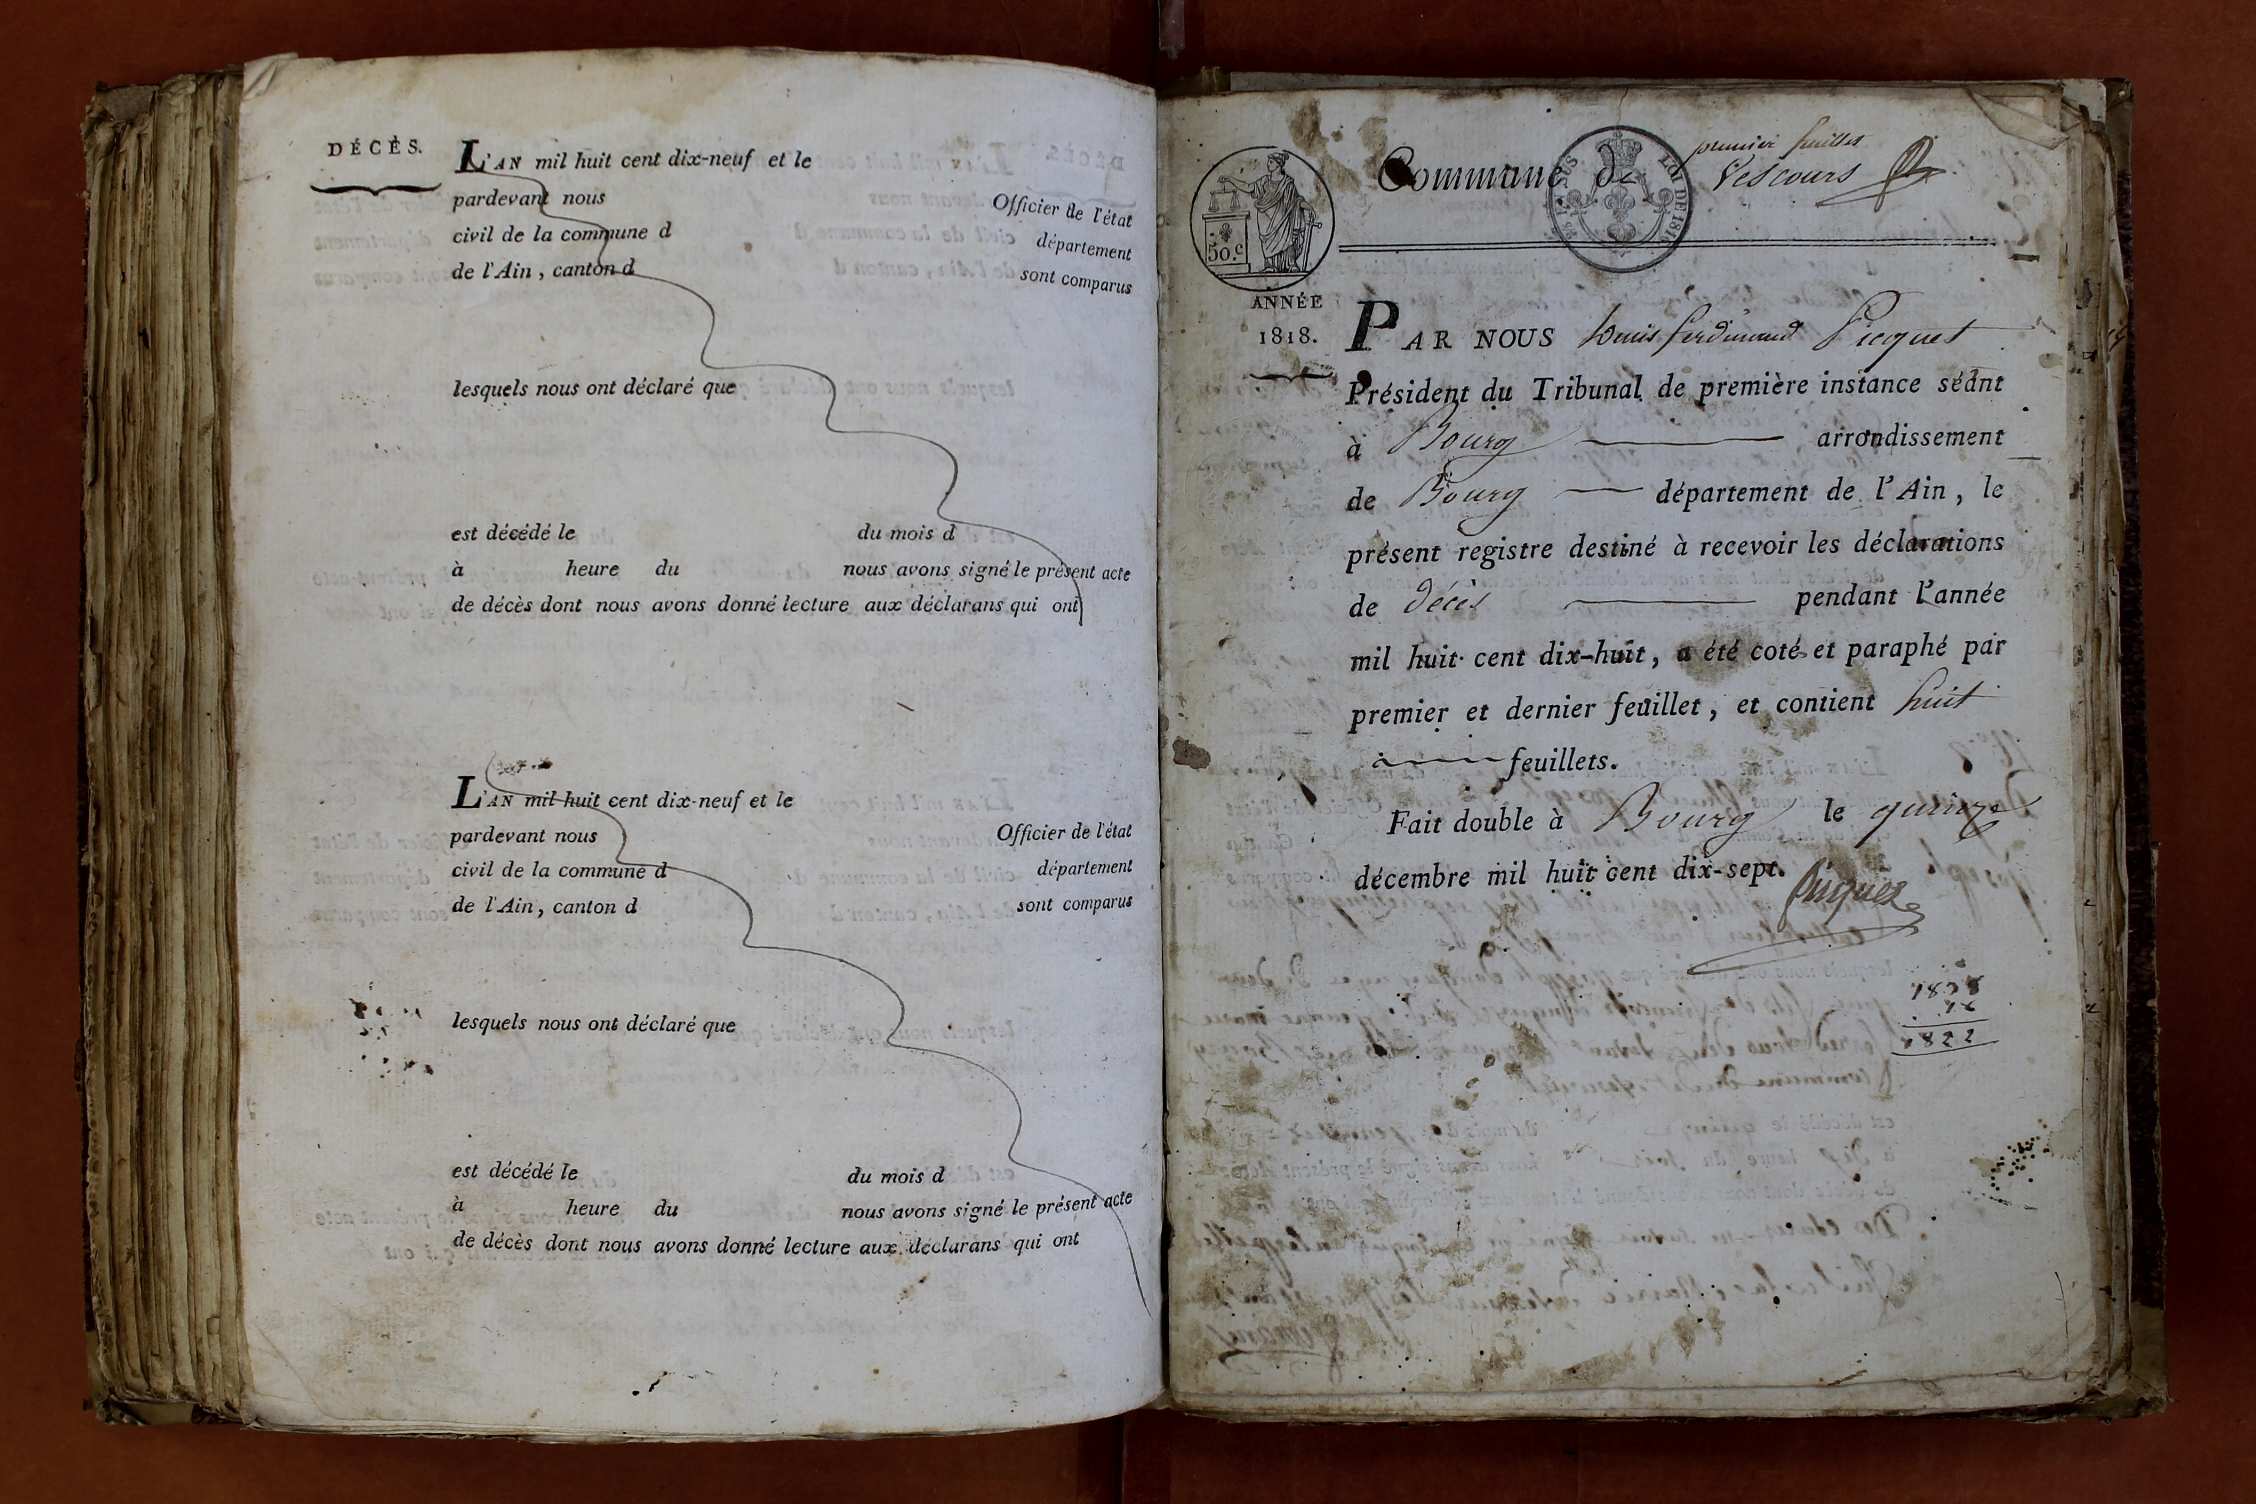 DÉCÈS.
L'AN mil huit cent dix-neuf et le
pardevant nous Officier de l'état
civil de la commune d département
de l'Ain, canton d sont comparus
lesquels nous ont déclaré que
est décédé le du mois d
à heure du nous avons signé le présent acte
de décès dont nous avons donné lecture aux déclarans qui ont
L'AN mil huit cent dix-neuf et le
pardevant nous Officier de l'état
civil de la commune d département
de l'Ain, canton d sont comparus
lesquels nous ont déclaré que
est décédé le du mois d
à heure du nous avons signé le présent acte
de décès dont nous avons donné lecture aux déclarans qui ont
premier feuillet
Commune de Vescours
LOI DE 1816
50.c
ANNÉE
1818.
PAR NOUS Louis ferdinand Picquet
Président du Tribunal de première instance séant
à Bourg arrondissement
de Bourg département de l'Ain, le
présent registre destiné à recevoir les déclarations
de décès pendant l'année
mil huit cent dix-huit, a été coté et paraphé par
premier et dernier feuillet, et contient huit
feuillets.
Fait double à Bourg le quinze
décembre mil huit cent dix-sept.
Picquet
1808
14
1822